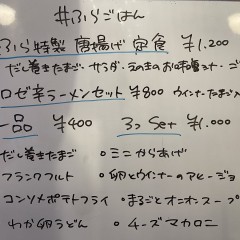 #ふらごはん
ふら特製 唐揚げ定食 ¥1.200
だし巻きたまご・サラダ・えのきのお味噌汁・ご
ロゼ辛ラーメンセット ¥800 ウインナーたまご入
一品 ¥400 3つSet ¥1.000
だし巻きたまご ・ミニからあげ
フランクフルト ・卵とウインナーのアヒージョ
コンソメポテトフライ ・まるごとオニオンスープ
わか卵うどん ・チーズマカロニ